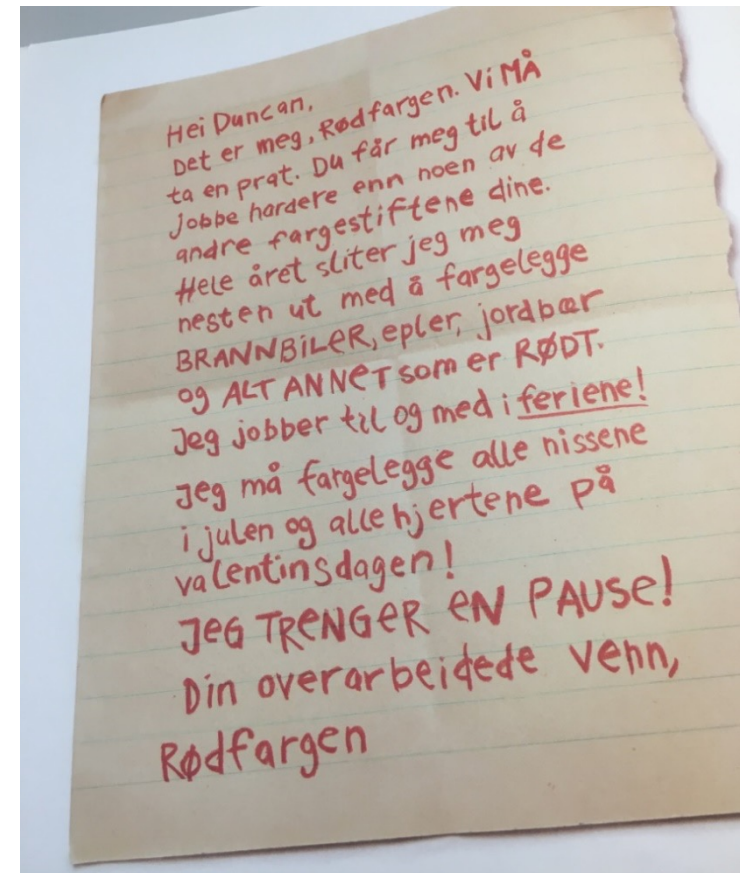 Hei Duncan,
Det er meg, Rødfargen. Vi MÅ
ta en prat. Du får meg til å
jobbe hardere enn noen av de
andre fargestiftene dine.
Hele året sliter jeg meg
nesten ut med å fargelegge
BRANNBiLER, epler, jordbær
og ALT ANNET som er RØDT.
Jeg jobber til og med i feriene!
Jeg må fargelegge alle nissene
i julen og alle hjertene på
valentinsdagen!
JEG TRENGER EN PAUSE!
Din overarbeidede venn,
Rødfargen